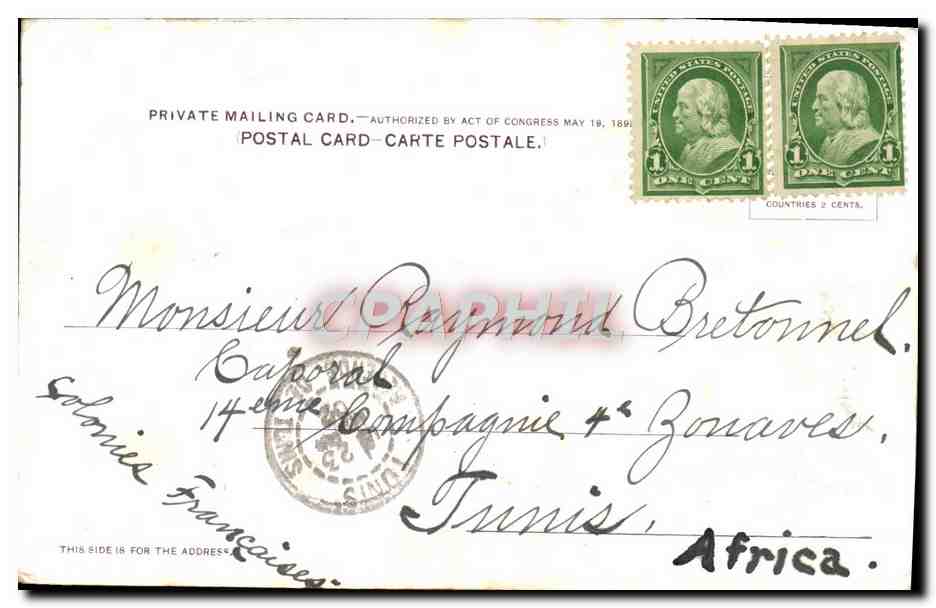 PRIVATE MAILING CARD.—AUTHORIZED BY ACT OF CONGRESS MAY 19, 189
(POSTAL CARD—CARTE POSTALE.)
UNITED STATES POSTAGE
1 1
ONE CENT
UNITED STATES POSTAGE
1 1
ONE CENT
COUNTRIES 2 CENTS.
CPAPHIL
Monsieur Raymond Bretonnel.
Caporal
14eme Compagnie 4e Zouaves.
Tunis.
Africa.
Colonies Françaises.
TUNIS
23
THIS SIDE IS FOR THE ADDRESS